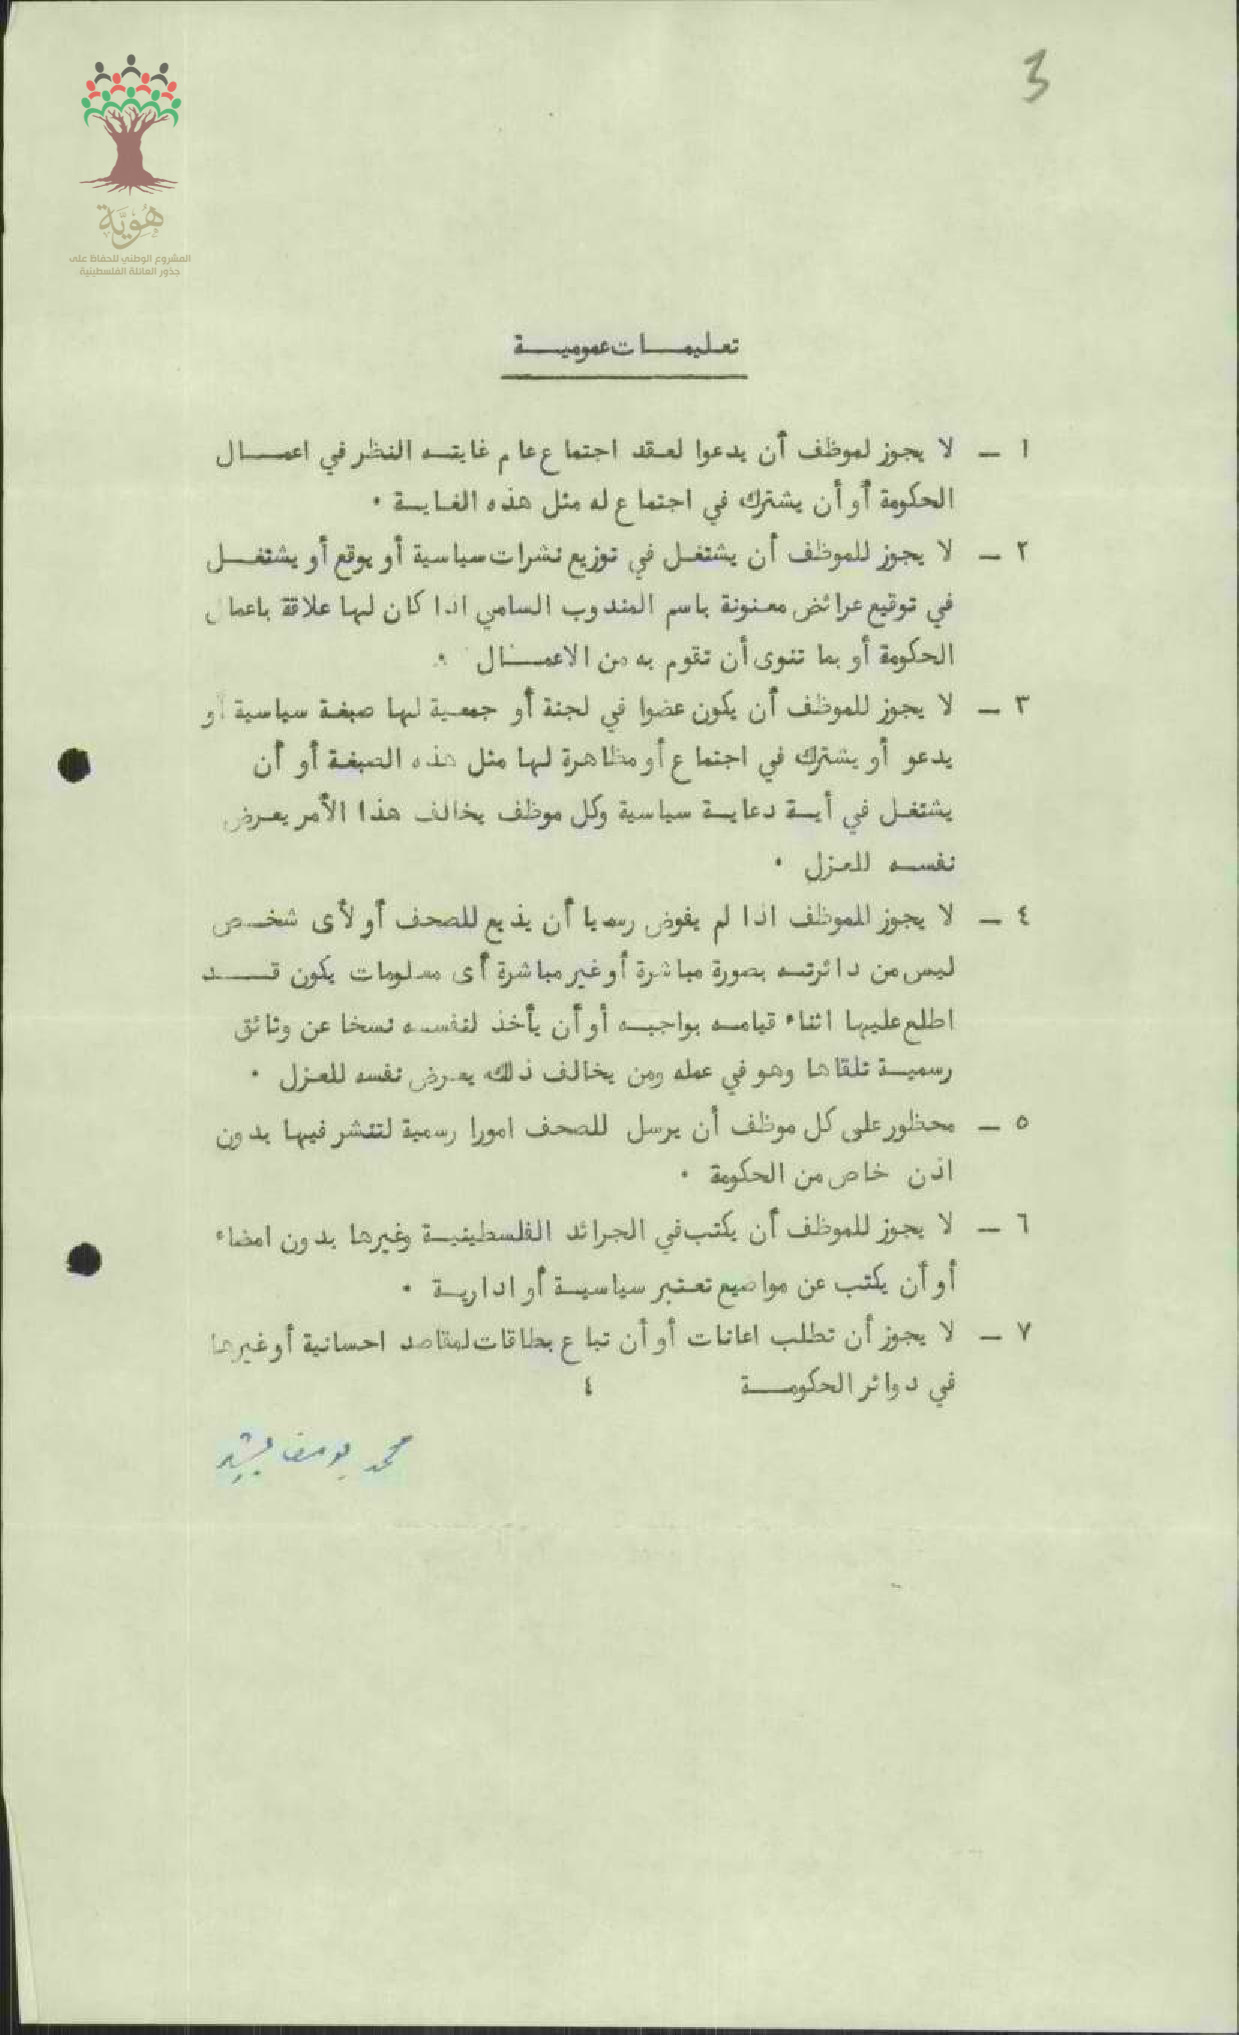 3
هُوِيَّة
المشروع الوطني للحفاظ على
جذور العائلة الفلسطينية
تعليمات عمومية
١ - لا يجوز لموظف أن يدعوا لعقد اجتماع عام غايته النظر في اعمال
الحكومة أو أن يشترك في اجتماع له مثل هذه الغاية ٠
٢ - لا يجوز للموظف أن يشتغل في توزيع نشرات سياسية أو يوقع أو يشتغل
في توقيع عرائض معنونة باسم المندوب السامي اذا كان لها علاقة باعمال
الحكومة أو بما تنوى أن تقوم به من الاعمال ٠
٣ - لا يجوز للموظف أن يكون عضوا في لجنة أو جمعية لها صبغة سياسية أو
يدعو أو يشترك في اجتماع أو مظاهرة لها مثل هذه الصبغة أو أن
يشتغل في أية دعاية سياسية وكل موظف يخالف هذا الأمر يعرض
نفسه للعزل ٠
٤ - لا يجوز للموظف اذا لم يفوض رسميا أن يذيع للصحف أو لأى شخص
ليس من دائرته بصورة مباشرة أو غير مباشرة أى معلومات يكون قد
اطلع عليها اثناء قيامه بواجبه أو أن يأخذ لنفسه نسخا عن وثائق
رسمية تلقاها وهو في عمله ومن يخالف ذلك يعرض نفسه للعزل ٠
٥ - محظور على كل موظف أن يرسل للصحف امورا رسمية لتنشر فيها بدون
اذن خاص من الحكومة ٠
٦ - لا يجوز للموظف أن يكتب في الجرائد الفلسطينية وغيرها بدون امضاء
أو أن يكتب عن مواضيع تعتبر سياسية أو ادارية ٠
٧ - لا يجوز أن تطلب اعانات أو أن تباع بطاقات لمقاصد احسانية أو غيرها
في دوائر الحكومة ٤
محمد يوسف